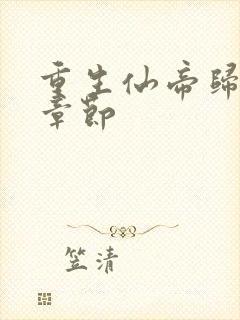 重生仙帝歸
章節
笠清